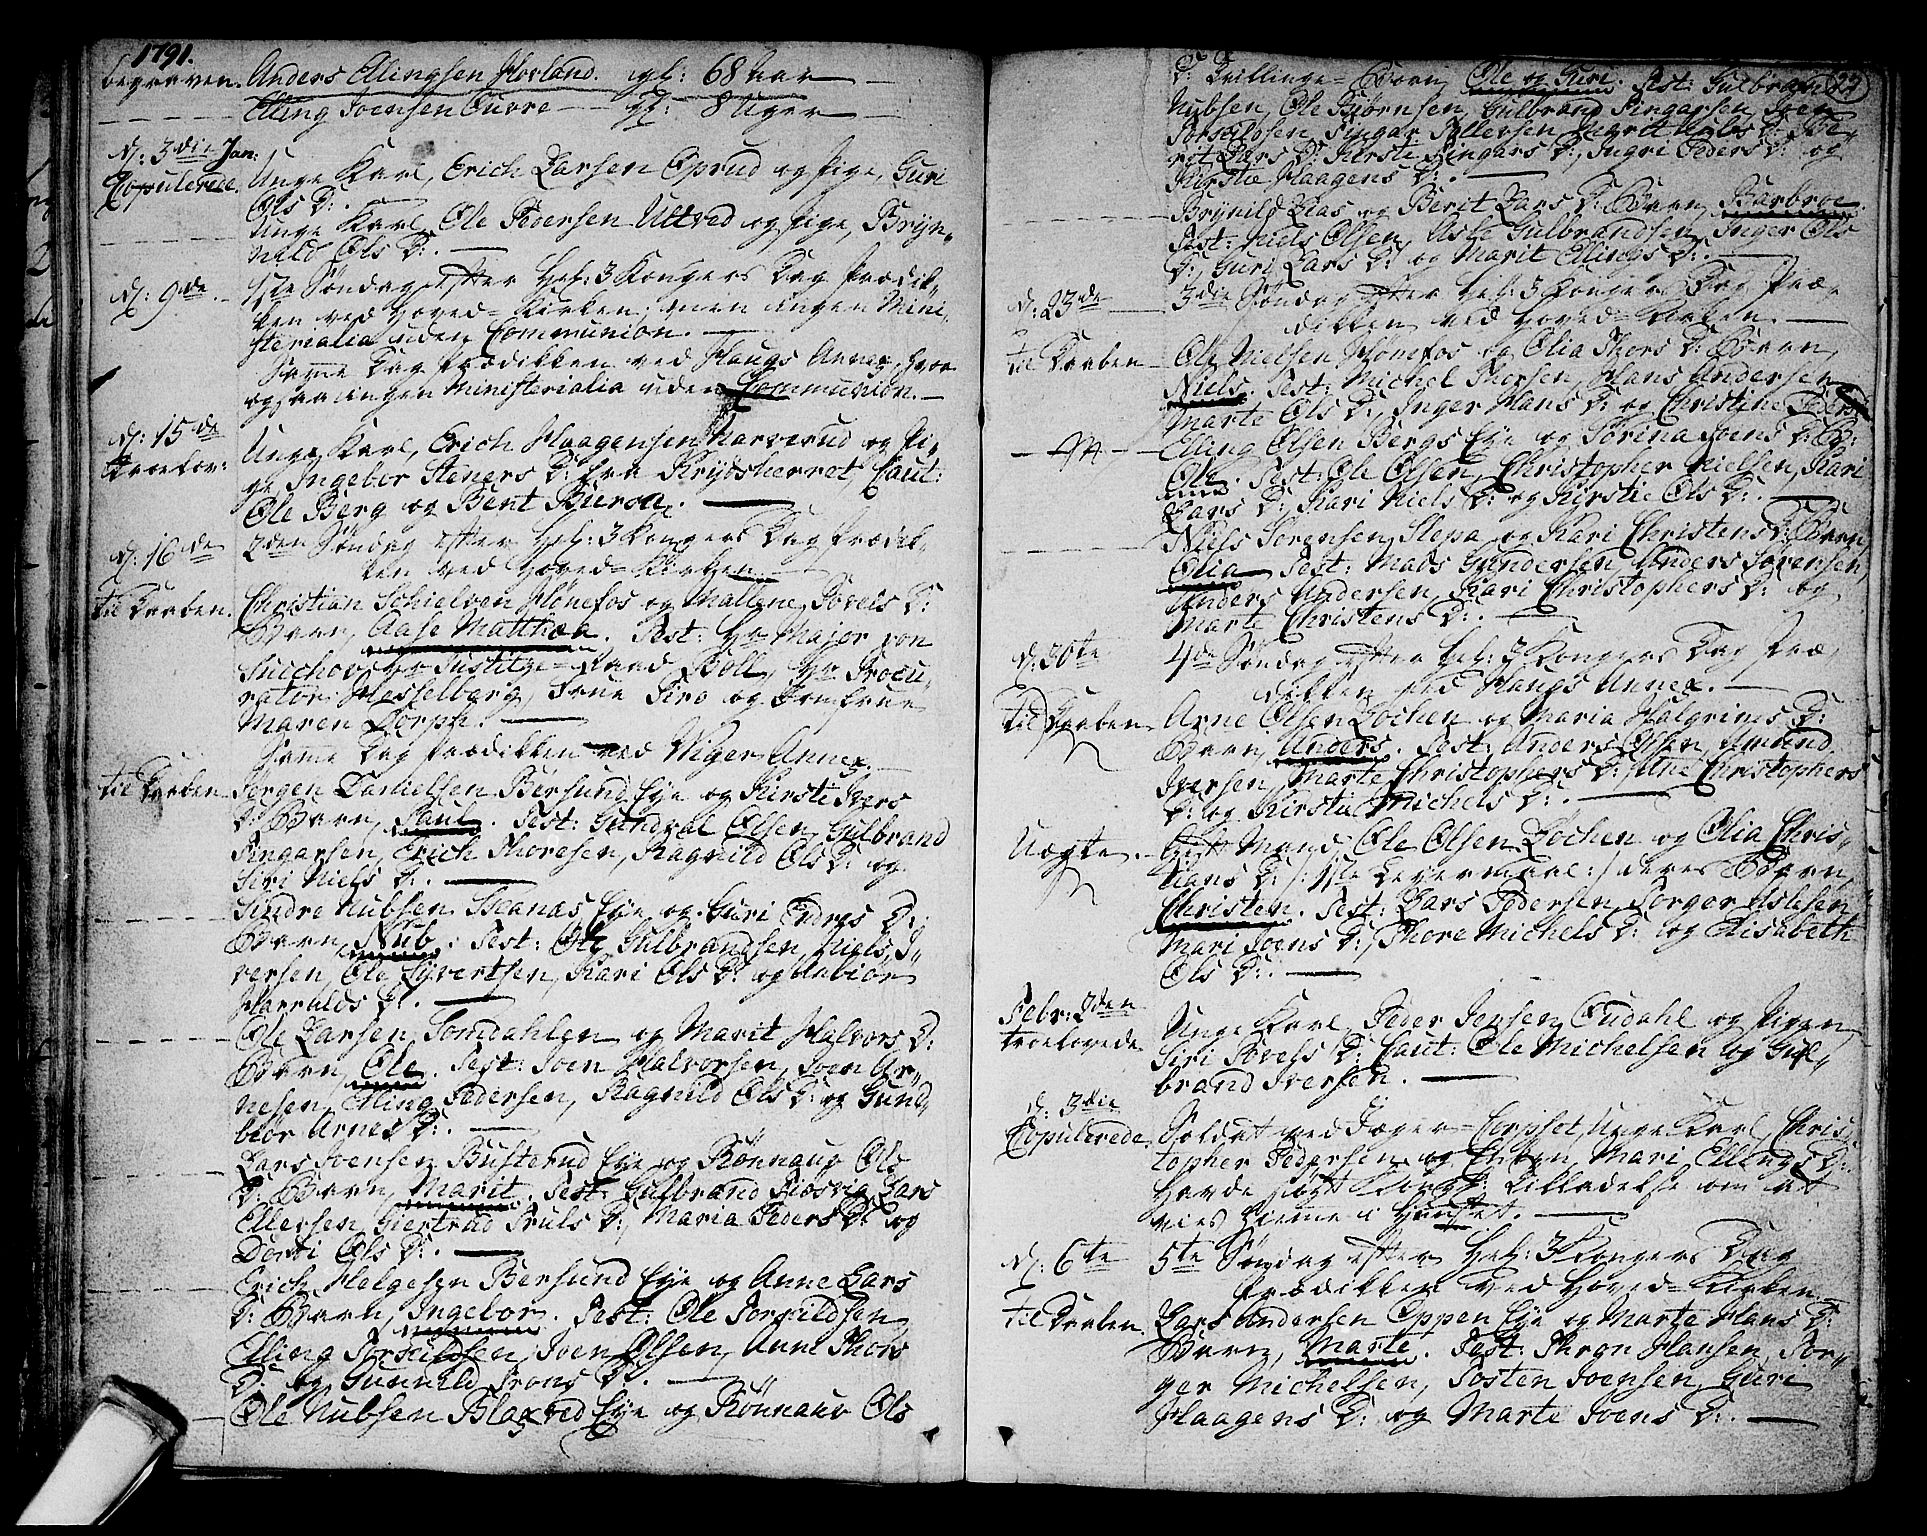 1791.
begraven. Anders Elingsen Horland. gl: 68 Aar
Elling Joensen Tuore gl: 8 Uger
d: 3die Jan:
Copulerede. Unge Karl, Erich Larsen Oprud og Pige, Guri
Ols D:
Unge Karl, Ole Pedersen Ultved og Pige, Bryn„
hild Ols D:.
d: 9de 1ste Søndag efter Hel: 3 Kongers Dag Prædik„
ken ved Hoved-Kirken, men ingen Mini„
sterialia uden Communion.
Samme Dag Prædikken ved Haugs Annex, hvor
og saa ingen Ministerialia uden Communion.
d: 15de
Troelov: Unge Karl, Erich Haagensen Harverud og Pi„
ge Ingebor Steners D: fra Krydsherret Caut:
Ole Berg og Bent Bieroe.
d: 16de 2den Søndag efter Hel: 3 Kongers Dag Prædik„
ken ved Hoved-Kirken.
til Daaben. Christian Schielven Hønefos og Mallene Povels D:
Barn, Aase Matthæa. Test: Hr Major von
Suchov, Hr Justitz-Raad Boll, Hr Procu„
rator Hesselberg, Frue Piro og Jomfrue
Maren Dorph.
Samme Dag Prædikken ved Viger Annex.
til Daaben Jørgen Danielsen Børsund Eye og Kirsti Ivers
D: Barn, Paul. Test: Gundval Olsen, Gulbrand
Fingarsen, Erich Thoresen, Ragnild Ols D: og
Siri Niels D:.
Sindre Nubsen Beanas Eye og Guri Endres D:
Barn, Nub. Test: Ole Gulbrandsen, Niels I„
versen, Ole Syvertsen, Kari Ols D: og Aabiør
Haralds D:.
Ole Larsen Somdahlen og Marit Halvors D:
Barn, Ole. Test: Joen Halvorsen, Joen Ar„
nesen, Elling Pedersen, Ragnild Ols D: og Gund„
biør Arnes D:.
Lars Joensen Busterud Eye og Rønnaug Ols
D: Barn, Marit. Test: Gulbrand Fiøsvig, Lars
Ellersen, Giertrud Truls D:, Maria Peders D: og
Dorti Ols D:.
Erich Helgesen Børsund Eye og Anne Lars
D: Barn, Ingebor. Test: Ole Torkildsen,
Elling Torkildsen, Joen Olsen, Anne Thors
D: og Gunnild Trons D:.
Ole Nubsen Blaxved Eye og Rønnaug Ols
D: Tvillinge-Børn Ole og Guri. Test: Gulbrand
Nubsen, Ole Biørnsen, Gulbrand Fingarsen, Joen
Torkildsen, Fingar Tollersen, Ingrit Nubs D:, Be„
ret Lars D: Kirsti Fingars D:, Ingri Peders D: og
Kirstie Haagens D:.
Brynild Aas og Berit Lars D: Barn, Barbroe.
Test: Niels Olsen, Aste Gulbrandsen, Inger Ols
D:, Guri Lars D: og Marit Ellings D:.
d: 23de 3die Søndag efter Hel: 3 Kongers Dag Præ„
dikken ved Hoved-Kirken.
til Daaben Ole Nielsen Hønefos og Olia Thors D: Barn,
Niels. Test: Michel Thorsen, Hans Andersen
Marte Ols D:, Inger Hans D: og Christine Peders D:
Elling Olsen Bergs Eye og Torina Joens D: B:
Ole. Test: Ole Olsen, Christopher Nielsen, Kari
Lars D:, Kari Niels D: og Kirstie Ols D:.
Niels Sørensen Stepa og Kari Christens D: Barn,
Olia. Test: Mads Gundersen, Anders Sørensen,
Anders Andersen, Kari Christophers D: og
Marte Christens D:.
d: 30te 4de Søndag efter Hel: 3 Kongers Dag Præ„
dikken ved Haugs Annex.
til Daaben Arne Olsen Lochen og Maria Halgrims D:
Barn, Anders. Test: Anders Olsen, Amund
Iversen, Marte Christophers D:, Ane Christophers
D: og Kirstie Michels D:.
Uægte. Gift Mand Ole Olsen Lochen og Olia Chris„
tians D: /: 1ste Leiermaal :/ deres Barn,
Christen. Test: Lars Pedersen, Torger Aslesen
Mari Joens D:, Thore Michels D: og Elisabeth
Ols D:.
Febr: 2den
Troelovede. Unge Karl, Peder Jensen Oudahl og Pigen
Siri Povels D: Caut: Ole Michelsen og Gul„
brand Iversen.
d: 3die
Copulerede Soldat ved Jæger-Corpset, Unge Karl, Chris„
topher Pedersen og Enken, Mari Ellings D:
Havde søgt Kongl: Tilladelse om at
vies hieme i Huuset.
d: 6te 5te Søndag efter Hel: 3 Kongers Dag
Prædikken ved Hoved-Kirken.
til Daaben. Lars Andersen Oppen Eye og Marte Hans D:
Barn, Marte. Test: Thron Hansen, Tor„
ger Michelsen, Tosten Joensen, Guri
Haagens D: og Marte Joens D:.